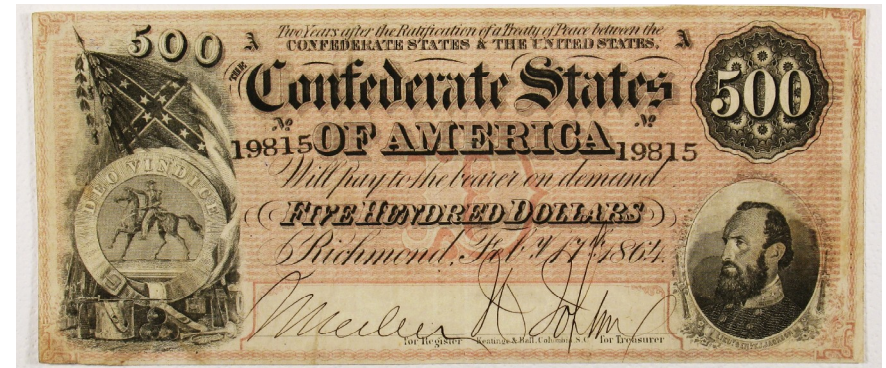 500
A
Two Years after the Ratification of a Treaty of Peace between the
A
CONFEDERATE STATES & THE UNITED STATES,
THE
Confederate States
500
No
No
19815 OF AMERICA 19815
Will pay to the bearer on demand
DEO VINDICE
FIVE HUNDRED DOLLARS
Richmond, Feb'y 17th 1864.
for Register
Keatinge & Ball, Columbia S.C.
for Treasurer